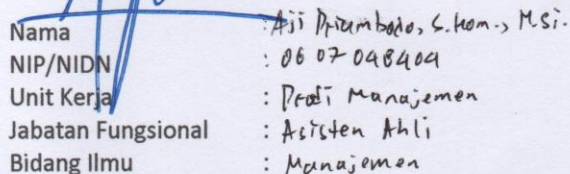 Nama : Aji Priambodo, S.Kom., M.Si.
NIP/NIDN : 06 07 048404
Unit Kerja : Prodi Manajemen
Jabatan Fungsional : Asisten Ahli
Bidang Ilmu : Manajemen